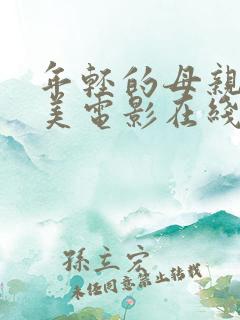 年轻的母亲
美电影在线
孫立宏
未经同意禁止转载